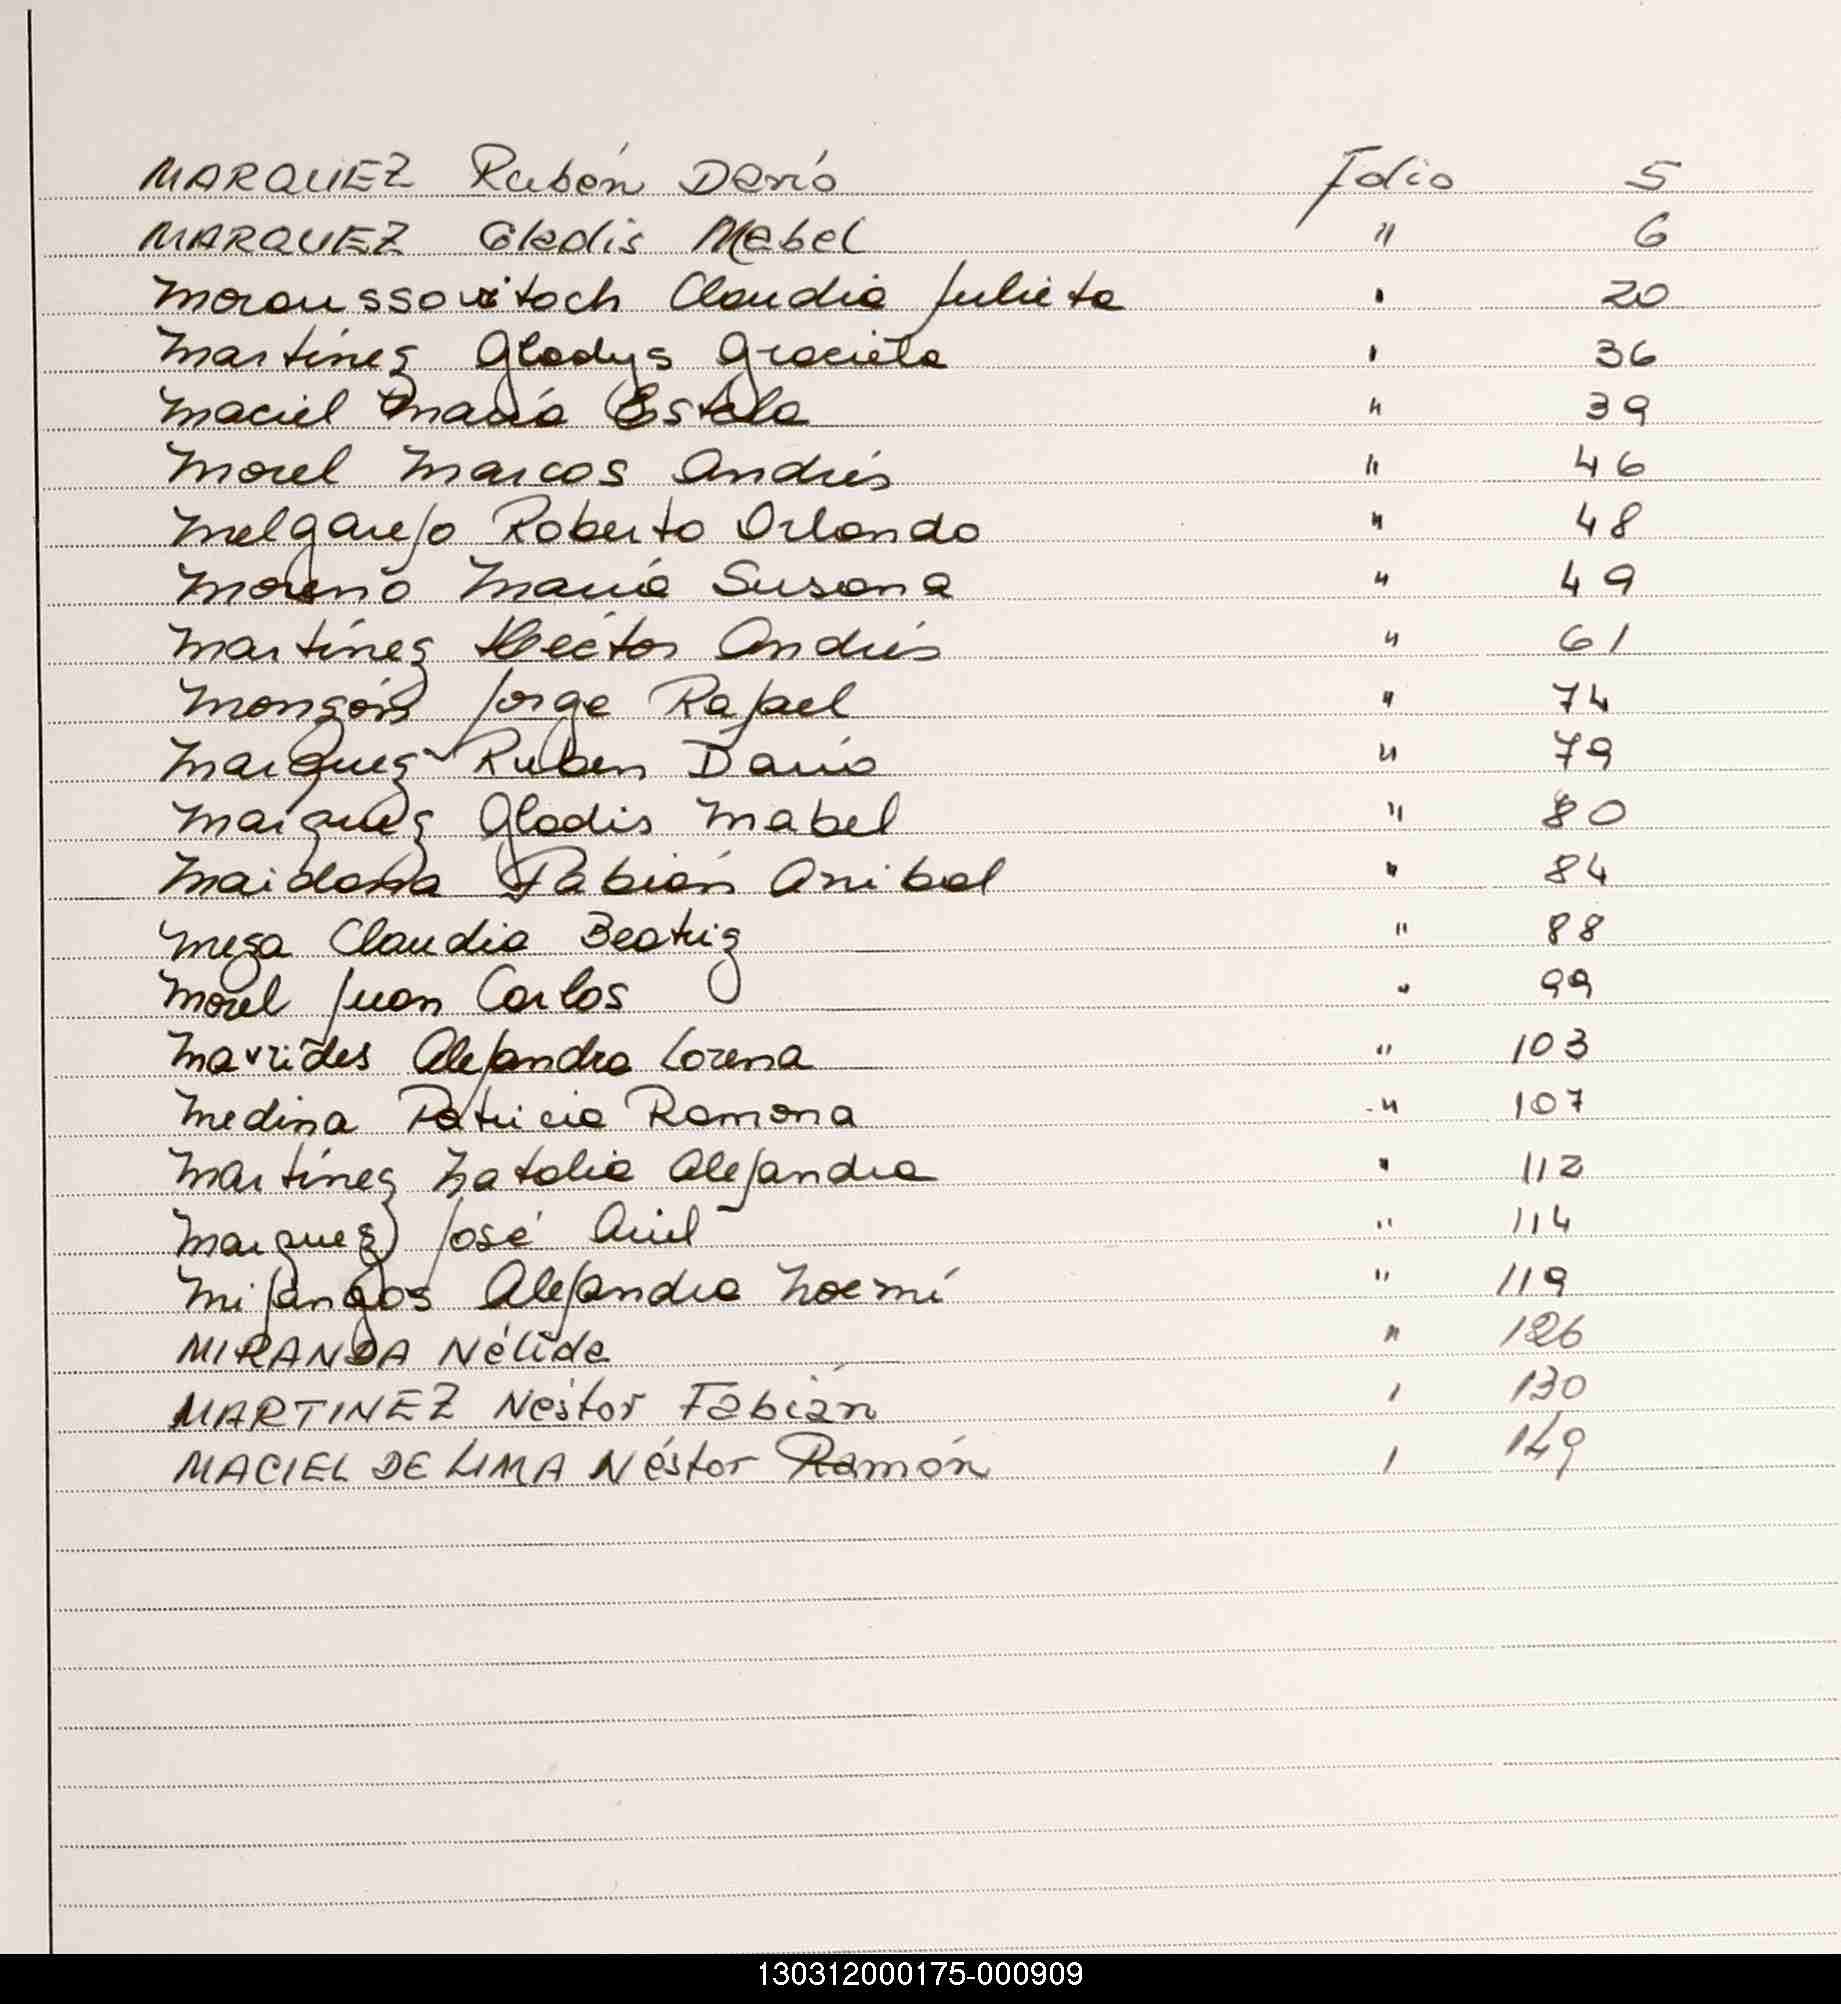 MARQUEZ Rubén Darío Folio 5
MARQUEZ Gladis Mabel " 6
Claudia Julieta " 20
Martínez Gladys Graciela " 36
Maciel María Estela " 39
Morel Marcos Andrés " 46
Melgarejo Roberto Orlando " 48
Moreno María Susana " 49
Martínez Héctor Andrés " 61
Monzón Jorge Rafael " 74
Marquez Ruben Darío " 79
Marquez Gladis Mabel " 80
Maidana Fabián Anibal " 84
Meza Claudia Beatriz " 88
Morel Juan Carlos " 99
Mavrides Alejandra Lorena " 103
Medina Patricia Ramona " 107
Martínez Natalia Alejandra " 112
Marquez José Ariel " 114
Mijangos Alejandra Noemí " 119
MIRANDA Nélida " 126
MARTINEZ Néstor Fabián " 130
MACIEL DE LIMA Néstor Ramón " 149
130312000175-000909